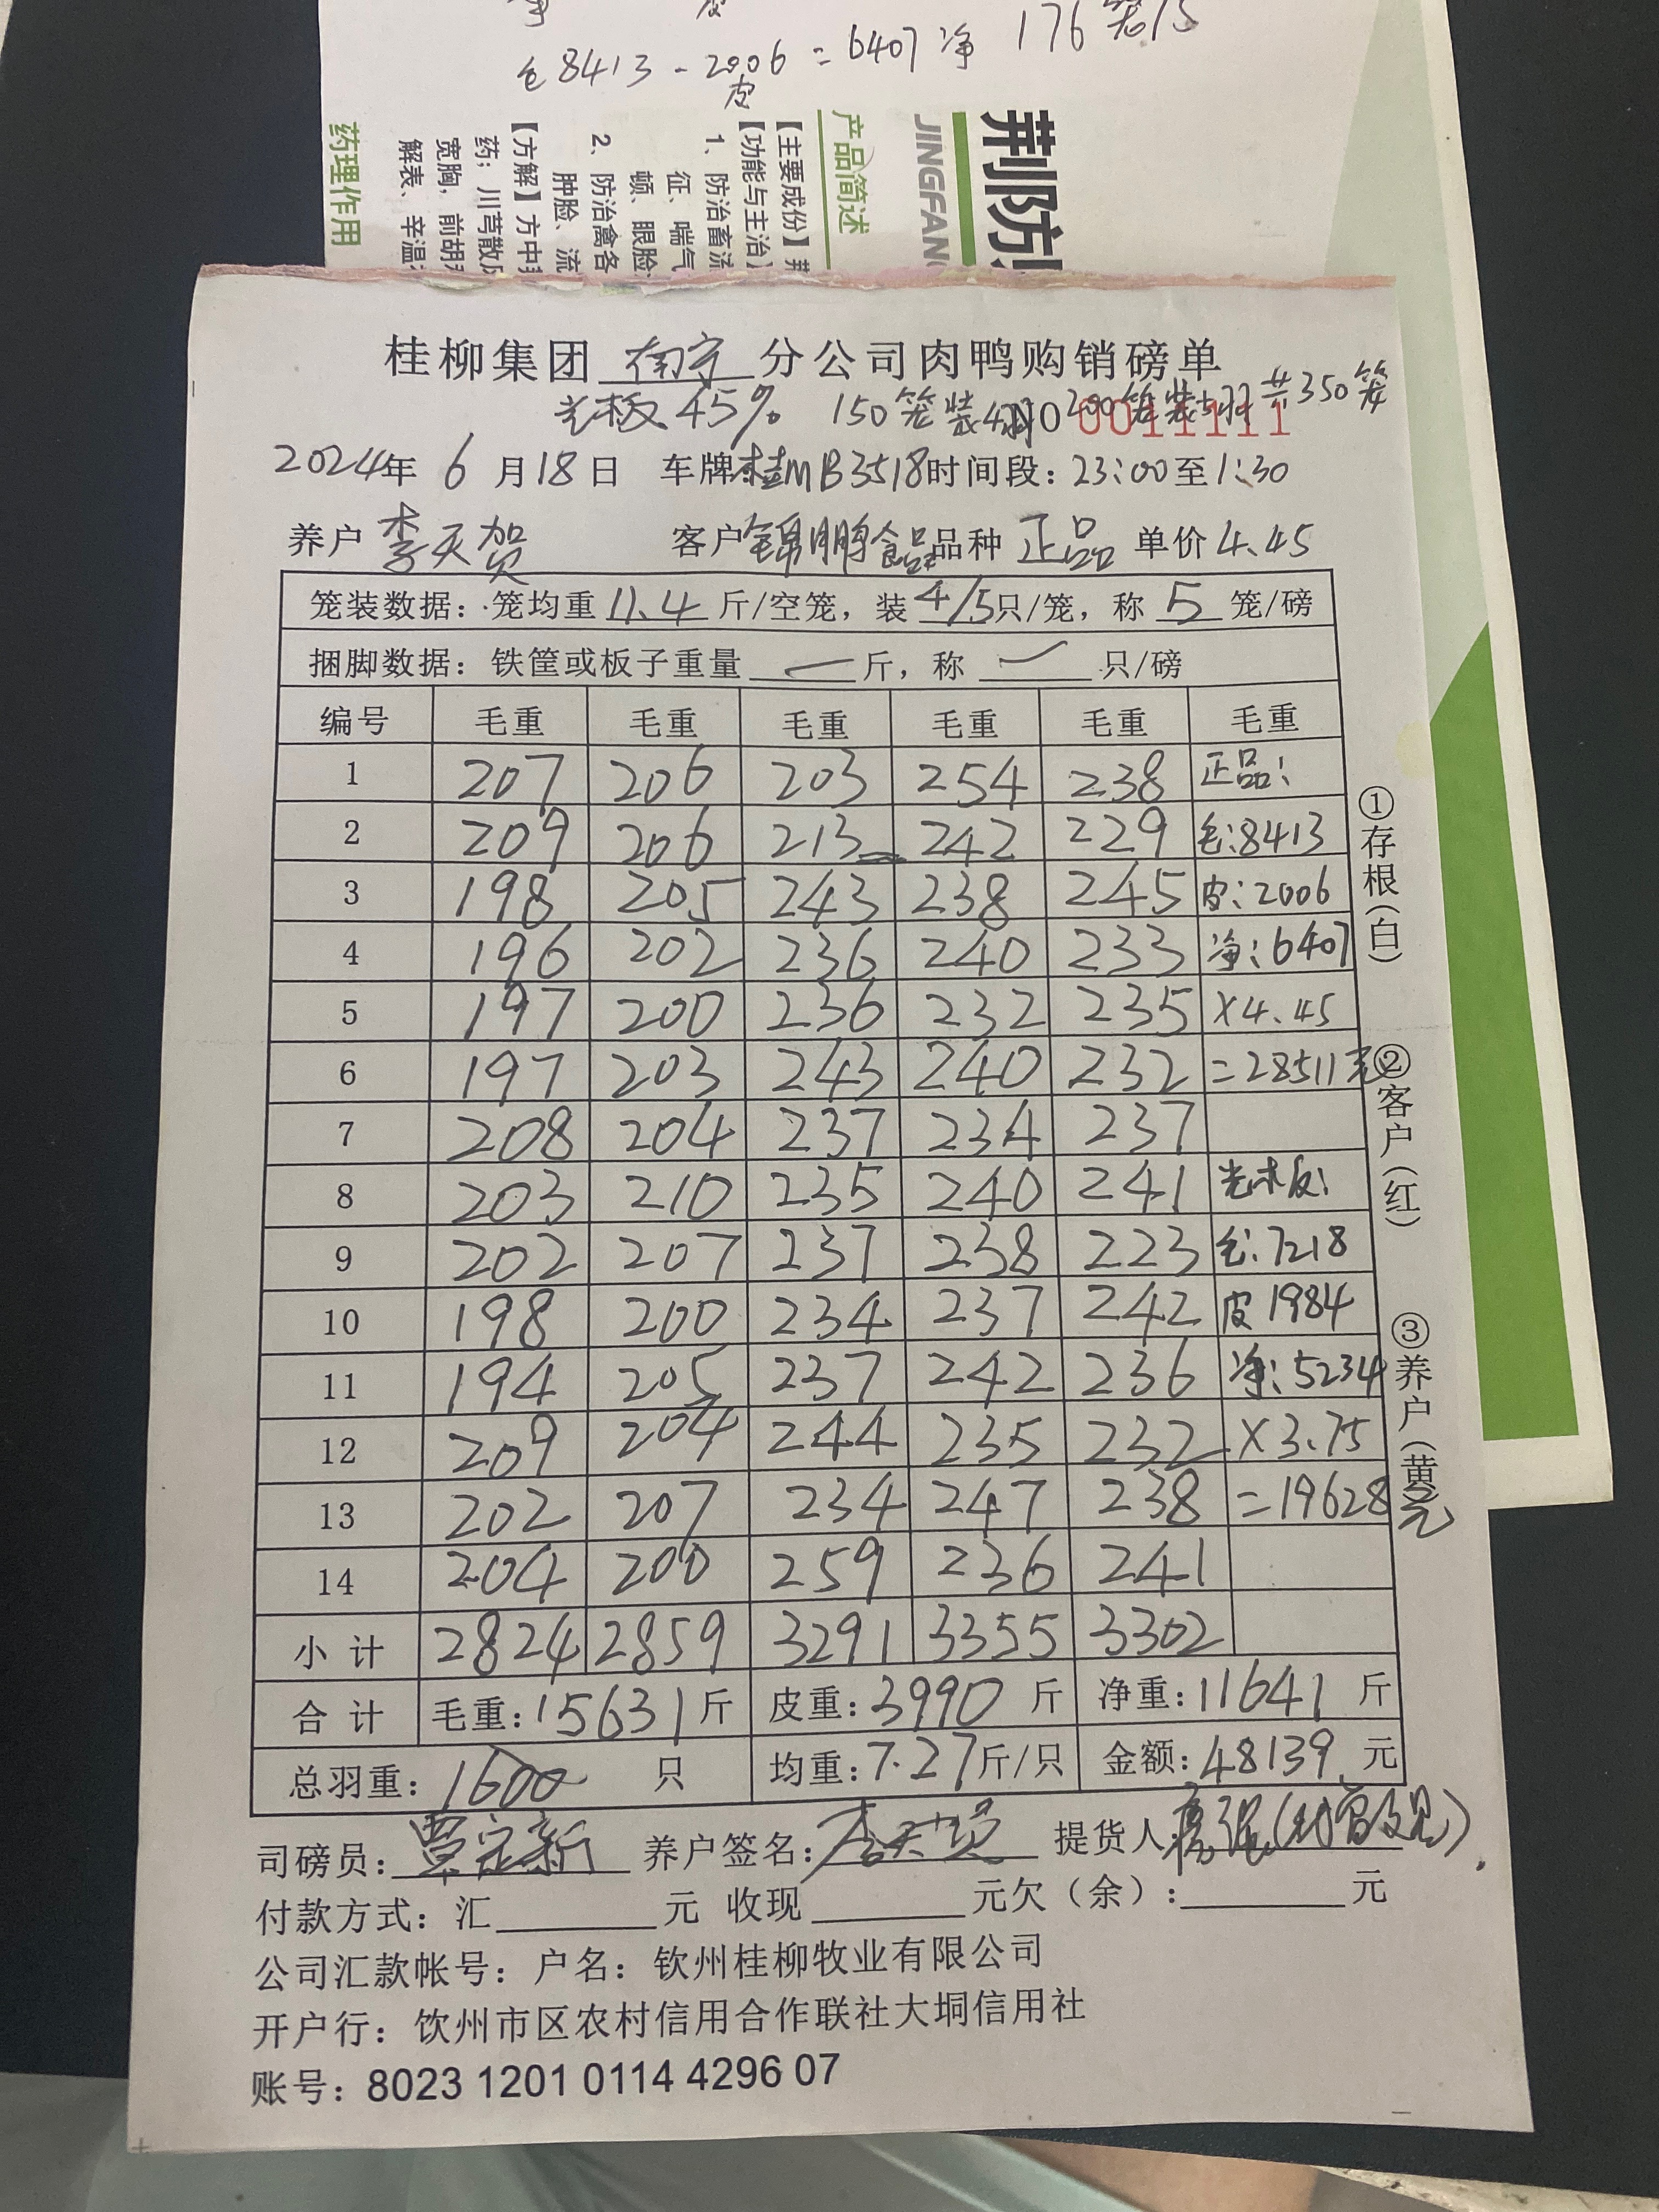 毛8413-2006=6407净 176笼/5
皮 皮
荆防
JINGFAN
产品简述
【主要成份】荆
【功能与主治】
1、防治畜流
征、喘气
顿、眼脸
2、防治禽各
肿脸、流
【方解】方中
药；川芎散
宽胸，前胡
解表、辛温
药理作用
桂柳集团 南宁 分公司肉鸭购销磅单
光板45% 150笼装4羽 200笼装5羽 共350笼
NO 0011111
2024年 6 月18日 车牌桂MB3518时间段：23:00至1:30
养户 李天贺 客户 锦鹏食品 品种 正品 单价 4.45
笼装数据：笼均重 11.4 斤/空笼，装 4/5 只/笼，称 5 笼/磅
捆脚数据：铁筐或板子重量 — 斤，称 — 只/磅
编号 毛重 毛重 毛重 毛重 毛重 毛重
1 207 206 203 254 238 正品：
2 209 206 213 242 229 毛：8413
3 198 205 243 238 245 皮：2006
4 196 202 236 240 233 净：6407
5 197 200 236 232 235 ×4.45
6 197 203 243 240 232 =28511元
7 208 204 237 234 237
8 203 210 235 240 241 光木板：
9 202 207 237 238 223 毛：7218
10 198 200 234 237 242 皮 1984
11 194 205 237 242 236 净：5234
12 209 204 244 235 232 ×3.75
13 202 207 234 247 238 =19628元
14 204 200 259 236 241
小 计 2824 2859 3291 3355 3302
合 计 毛重：15631斤 皮重：3990 斤 净重：11641 斤
总羽重：1600 只 均重：7.27斤/只 金额：48139 元
司磅员：覃定新 养户签名：李天贺 提货人
付款方式：汇 元 收现 元欠（余）： 元
公司汇款帐号：户名：钦州桂柳牧业有限公司
开户行：饮州市区农村信用合作联社大垌信用社
账号：8023 1201 0114 4296 07
①存根（白）
②客户（红）
③养户（黄）